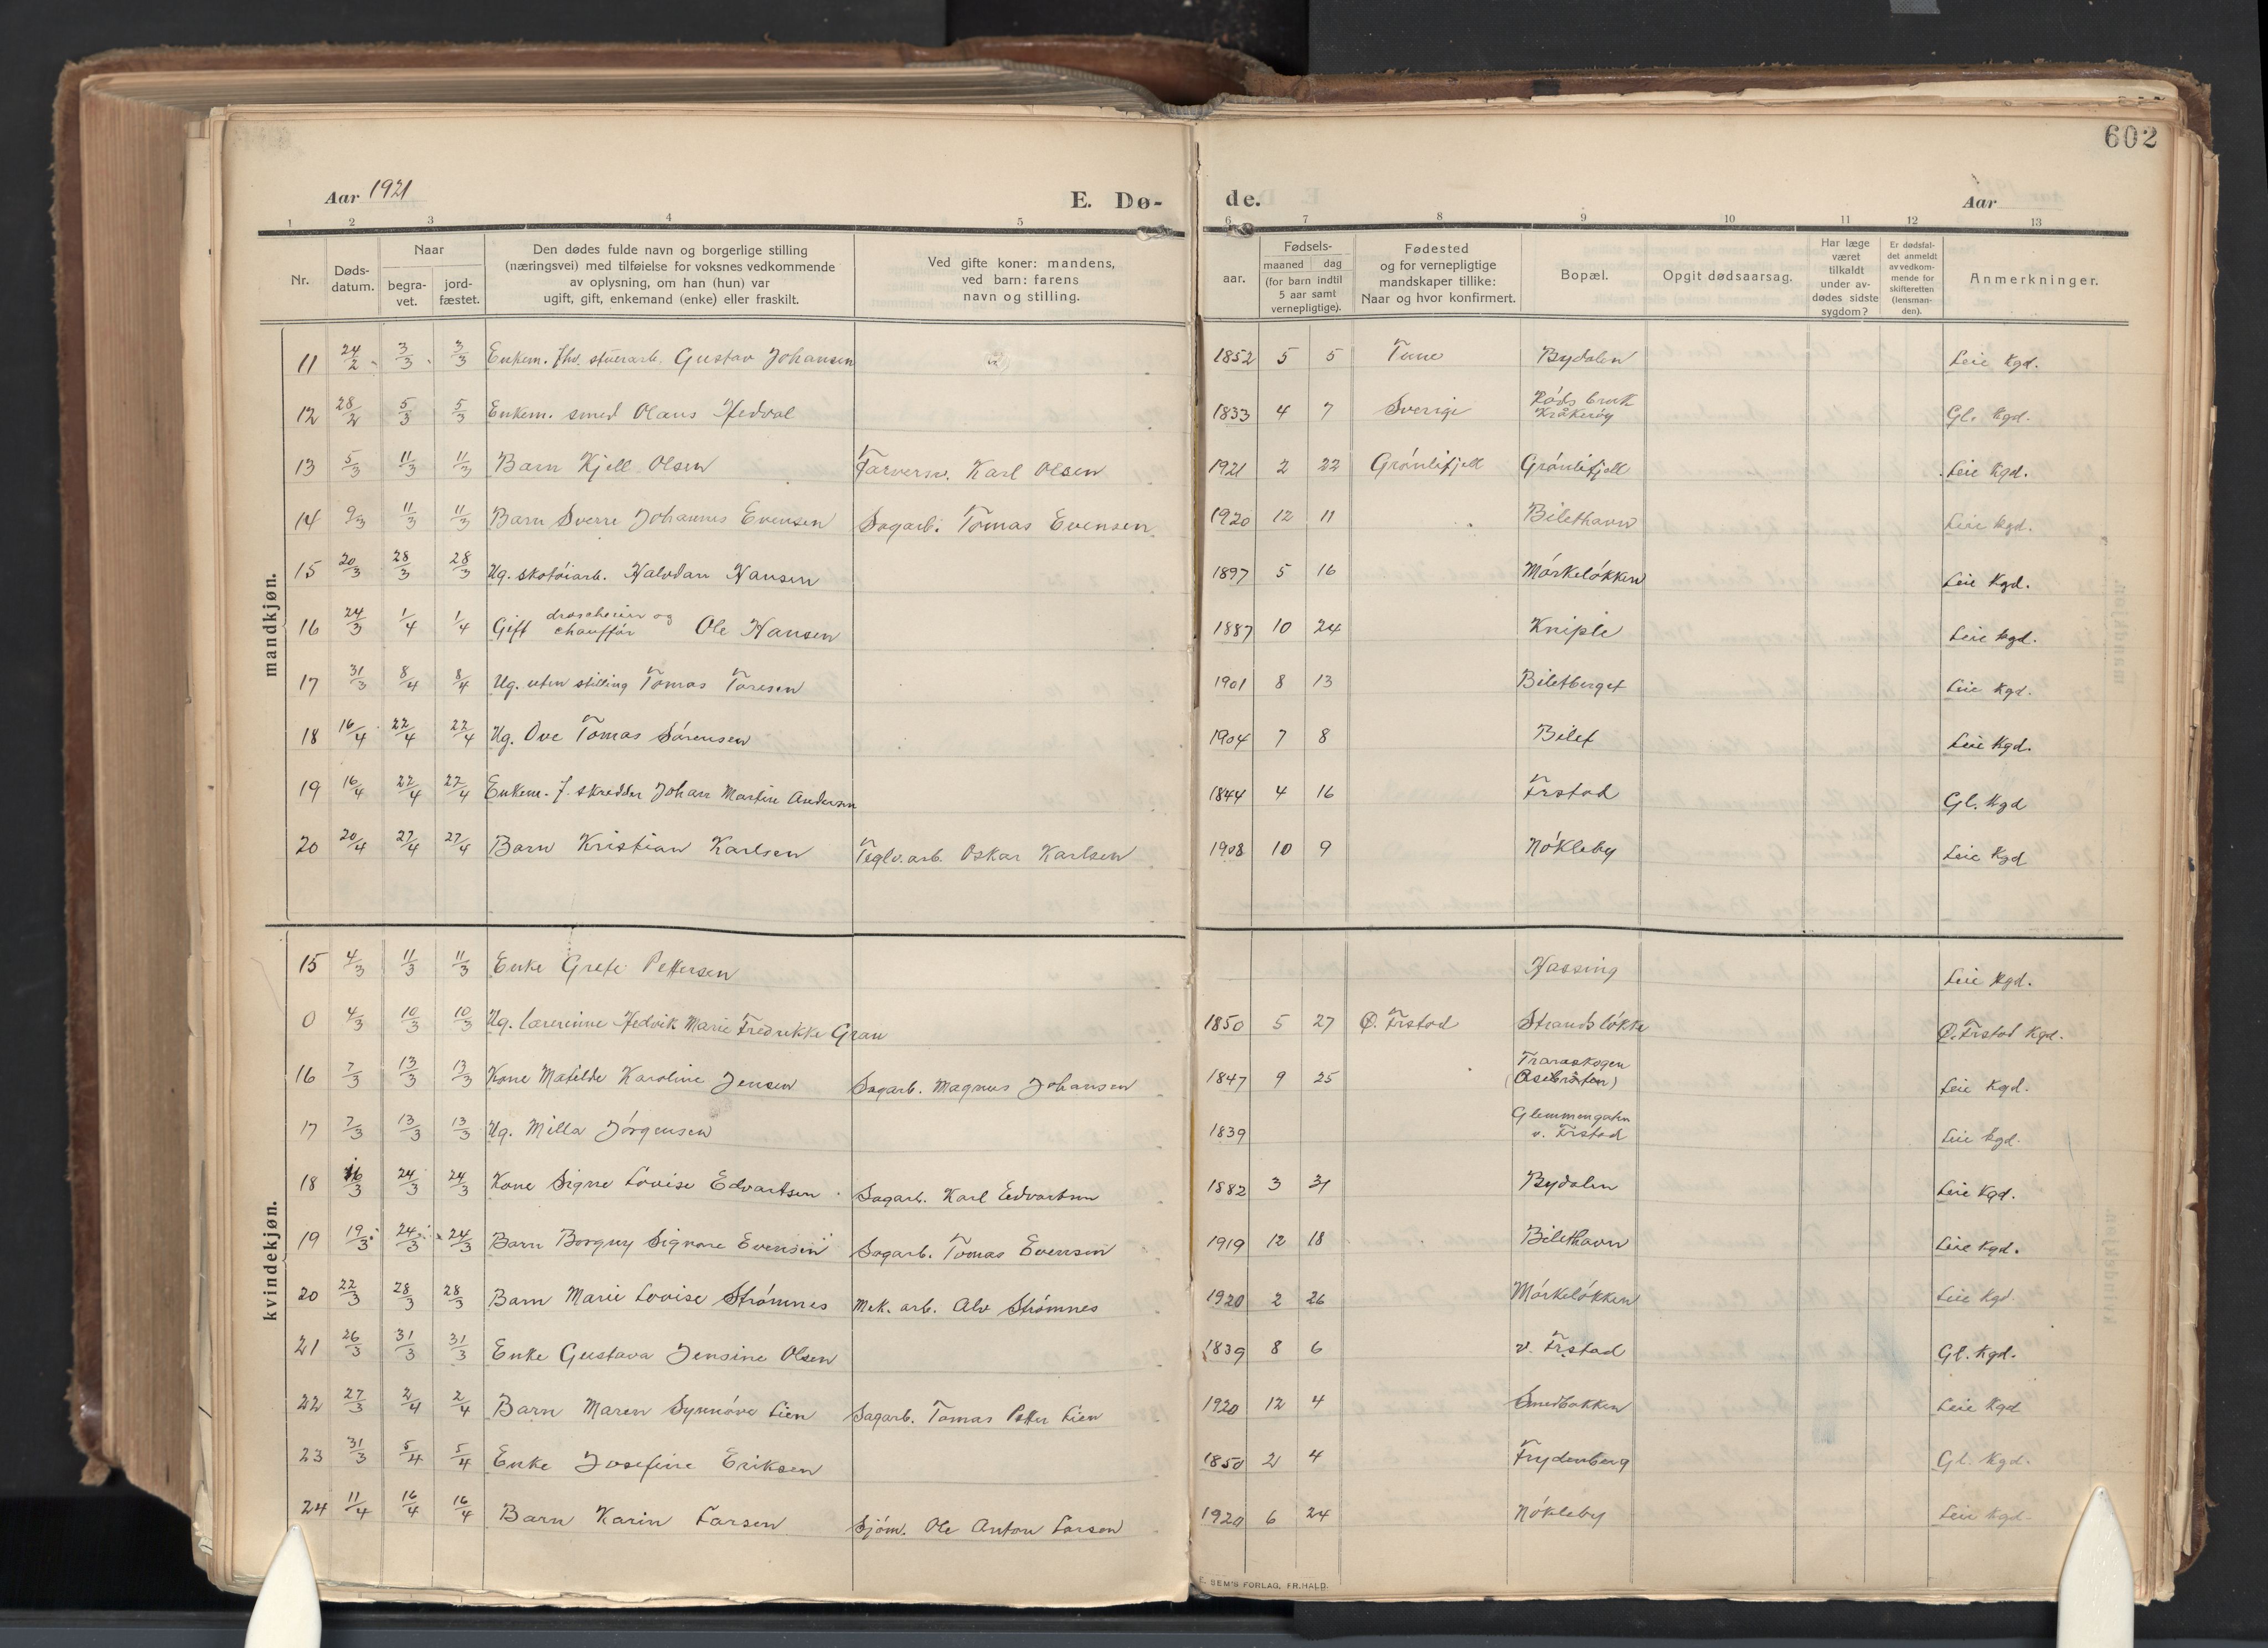 602
Aar 1921 E. Dø- de. Aar
1 2 3 4 5 6 7 8 9 10 11 12 13
Nr. Døds-datum. Naar begra-vet. jord-fæstet. Den dødes fulde navn og borgerlige stilling (næringsvei) med tilføielse for voksnes vedkommende av oplysning, om han (hun) var ugift, gift, enkemand (enke) eller fraskilt. Ved gifte koner: mandens, ved barn: farens navn og stilling. aar. Fødsels- maaned dag (for barn indtil 5 aar samt vernepligtige). Fødested og for vernepligtige mandskaper tillike: Naar og hvor konfirmert. Bopæl. Opgit dødsaarsag. Har læge været tilkaldt under av-dødes sidste sygdom? Er dødsfal-det anmeldt av vedkom-mende for skifteretten (lensman-den). Anmerkninger.
mandkjøn.
11 24/2 3/3 3/3 Enkem. fhv. stuerarb. Gustav Johansen 1852 5 5 Tune Bydalen Leie Kgd.
12 28/2 5/3 5/3 Enkem. smed Olaus Hedval 1833 4 7 Sverige Røds bruk Kråkerøy Gl. Kgd.
13 5/3 11/3 11/3 Barn Kjell Olsen Farversv. Karl Olsen 1921 2 22 Grønlifjell Grønlifjell Leie Kgd.
14 9/3 11/3 11/3 Barn Sverre Johannes Evensen Sagarb. Tomas Evensen 1920 12 11 Bilethavn Leie kgd.
15 20/3 28/3 28/3 Ug. skotøiarb. Halvdan Hansen 1897 5 16 Mørkeløkken Leie Kgd.
16 24/3 1/4 1/4 Gift droscheeier og chauffør Ole Hansen 1887 10 24 Kniple Leie kgd.
17 31/3 8/4 8/4 Ug. uten stilling Tomas Toresen 1901 8 13 Biletberget Leie Kgd.
18 16/4 22/4 22/4 Ug. Ove Tomas Sørensen 1904 7 8 Bilet Leie Kgd.
19 16/4 22/4 22/4 Enkem. f. skredder Johan Martin Andersen 1844 4 16 Frstad Gl. Kgd
20 20/4 27/4 27/4 Barn Kristian Karlsen Teglv.arb. Oskar Karlsen 1908 10 9 Nøkleby Leie Kgd
kvindekjøn.
15 4/3 11/3 11/3 Enke Grete Pettersen Hassing Leie Kgd.
0 4/3 10/3 10/3 Ug. lærerinne Hedvik Marie Fredrikke Grau 1850 5 27 Ø. Frstad Strandsløkke Ø. Frstad Kgd.
16 7/3 13/3 13/3 Kone Matilde Karoline Jensen Sagarb. Magnus Johansen 1847 9 25 Traraskogen (Asebråten) Leie Kgd.
17 7/3 13/3 13/3 Ug. Milla Jørgensen 1839 Glemmengaten v. Frstad Leie Kgd.
18 16/3 24/3 24/3 Kone Signe Lovise Edvartsen Sagarb. Karl Edvartsen 1882 3 31 Bydalen Leie Kgd.
19 19/3 24/3 24/3 Barn Borgny Signore Evensen Sagarb. Tomas Evensen 1919 12 18 Bilethavn Leie Kgd.
20 22/3 28/3 28/3 Barn Marie Lovise Strømnes Mek. arb. Alv Strømnes 1920 2 26 Mørkeløkken Leie Kgd.
21 26/3 31/3 31/3 Enke Gustava Jensine Olsen 1839 8 6 v. Frstad Gl. Kgd.
22 27/3 2/4 2/4 Barn Maren Synnøve Lien Sagarb. Tomas Petter Lien 1920 12 4 Smedbakken Leie Kgd
23 31/3 5/4 5/4 Enke Josefine Eriksen 1850 2 4 Frydenberg Gl. Kgd.
24 11/4 16/4 16/4 Barn Karin Larsen Sjøm. Ole Anton Larsen 1920 6 24 Nøkleby Leie Kgd.
E. SEM'S FORLAG, FR.HALD.